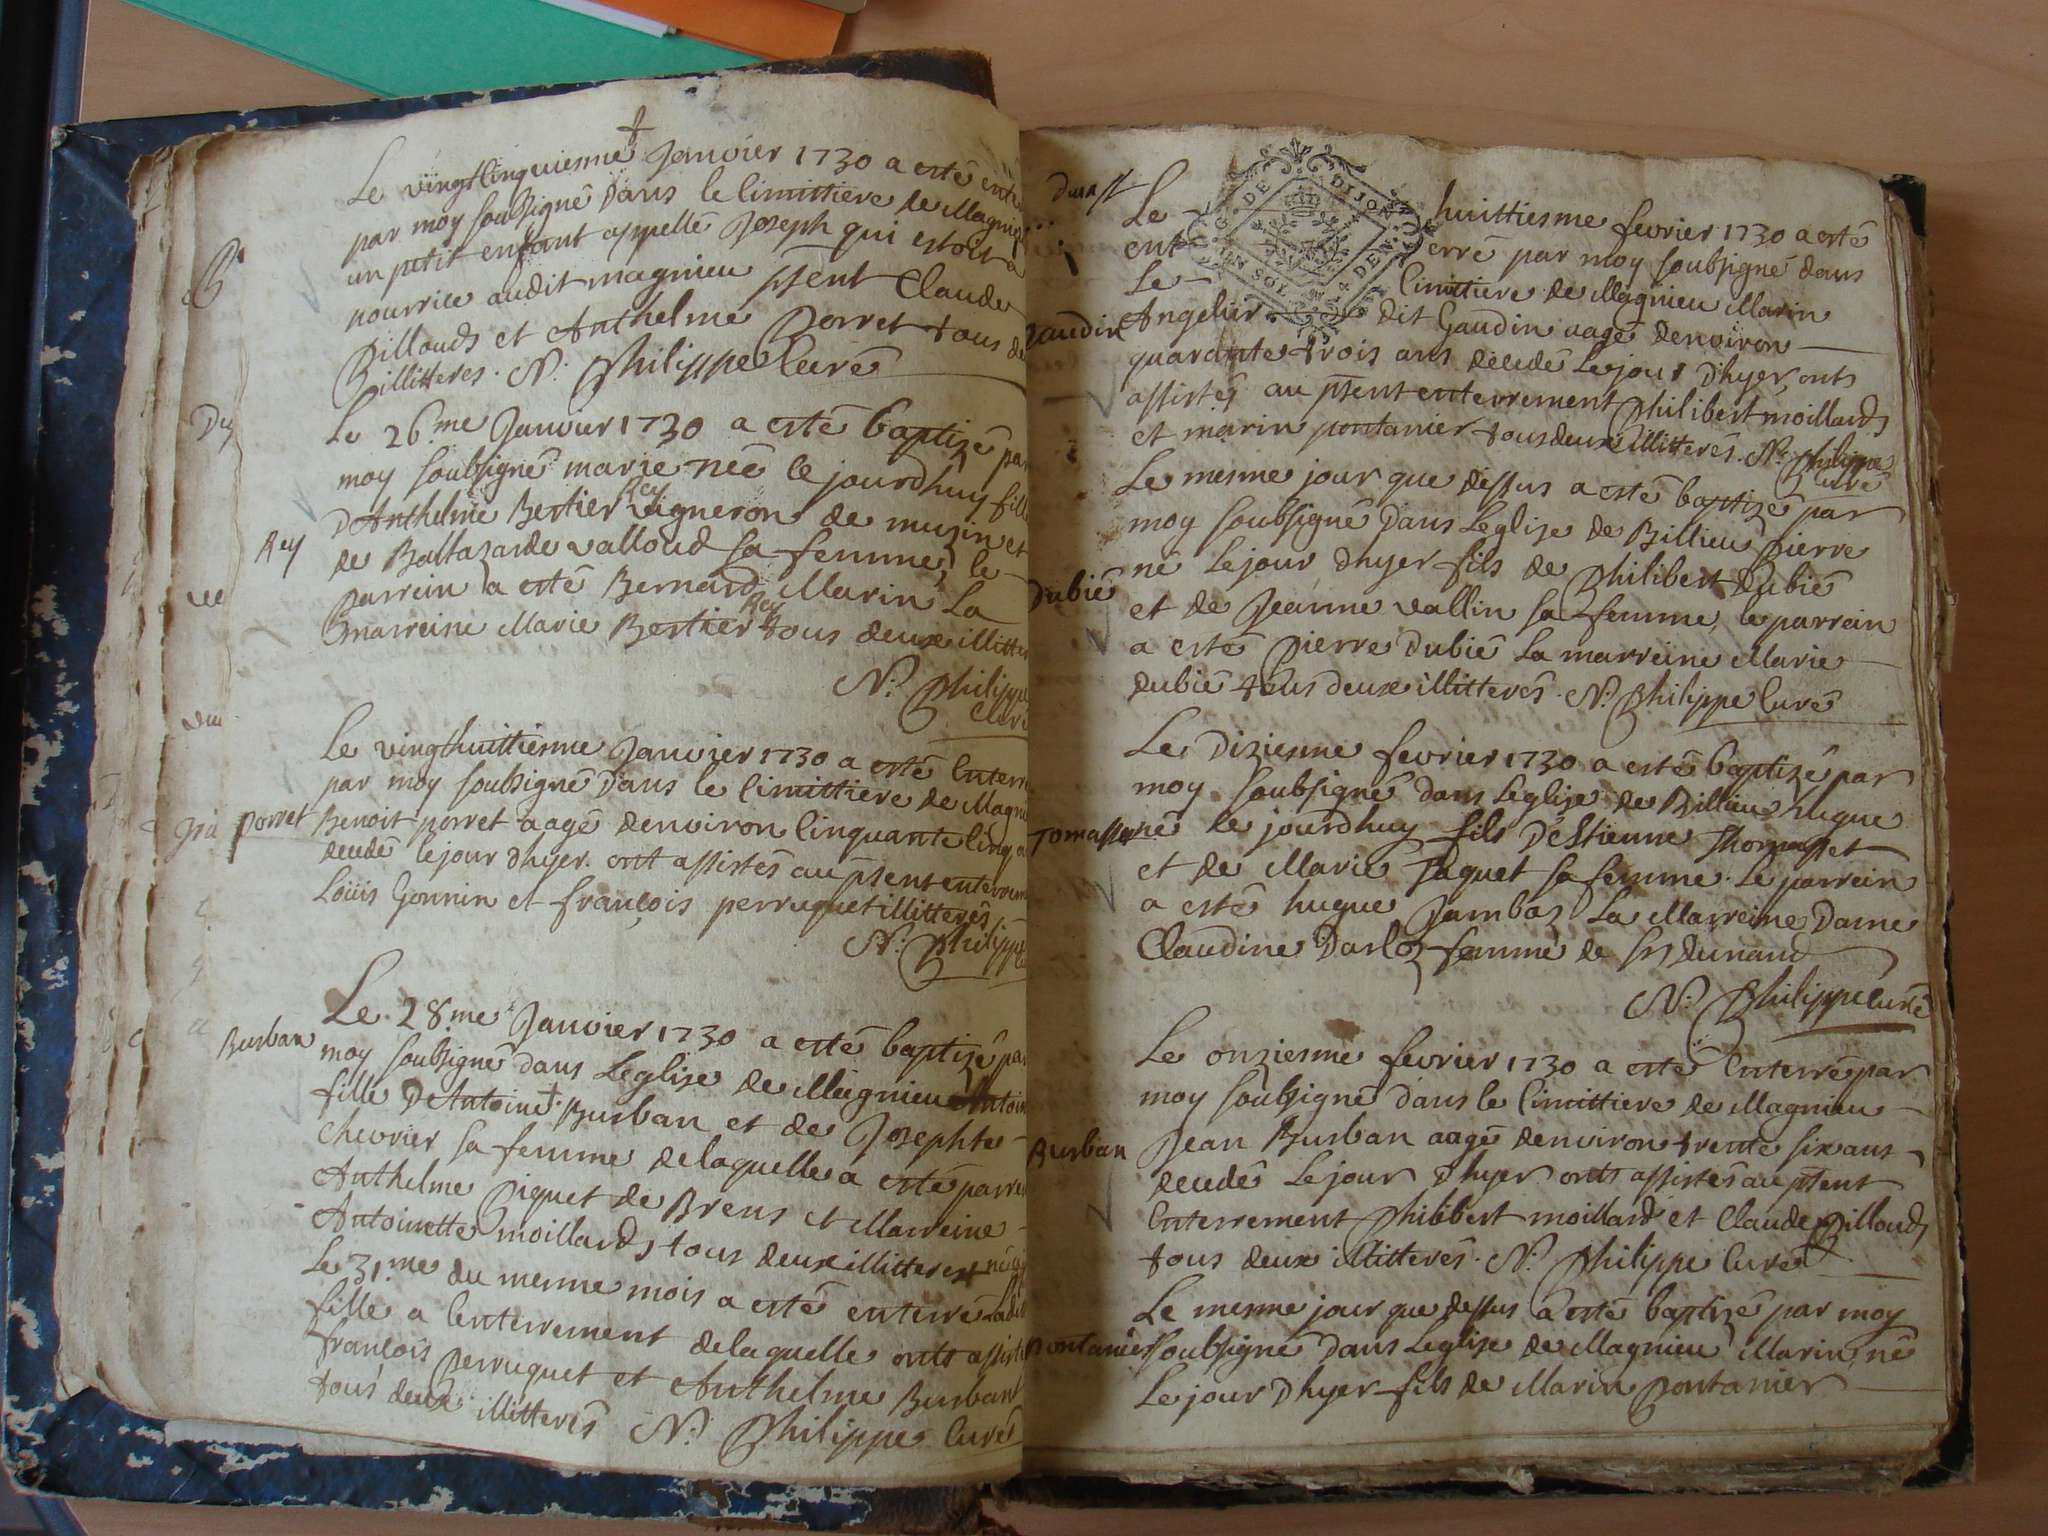 Le vingtcinquiesme Janvier 1730 a esté
par moy soubsigné dans le cimittiere de Magnieu
un petit enfant appellé Joseph qui estoit a
nourrice audit magnieu psent Claude
Billoud et Anthelme Porret tous
illitteres. N. Philippe Curé
Le 26.me Janvier 1730 a esté baptizé par
moy soubsigné marie née le jourdhuy fille
D'Anthelme Bertier Rey vigneron de muzin et
Rey
de Baltazarde valloud sa femme, le
parrein a esté Bernard Marin La
marreine Marie Bertier Rey tous deux
N. Philippe
Curé
Le vingthuittiesme Janvier 1730 a esté
par moy soubsigné dans le cimittiere de
porret
Benoit porret aagé denviron cinquante cinq
decedé le jour dhyer. ont assistés au psent
Louis Gonnin et françois perruquet illitterés,
N. Philippe
Le 28.me Janvier 1730 a esté baptizé par
Burban
moy soubsigné dans Leglise de Magnieu
fille D'Antoine Burban et de Josephte
chevrier sa femme delaquelle a esté
Anthelme Piquet de Brens et Marreine
Antoinette moillard tous deux illitteres
Le 31.me du mesme mois a esté enterré
fille a lenterrement delaquelle onts
françois Perruquet et Anthelme Burban
tous deux illitterés N. Philippe Curé
G. DE DIJON
UN SOL 4 DEN
Le huittiesme fevrier 1730 a esté
enterré par moy soubsigné dans
Le cimittiere de Magnieu Marin
gaudin
Angelier dit Gaudin aagé denviron
quarante trois ans decedé Le jour Dhyer, onts
assistés au psent enterrement Philibert moillard
et marin pontanier tous deux illitterés. N. Philippe
Curé
Le mesme jour que dessus a esté baptizé par
moy soubsigné dans Leglise de Billieu Pierre
né Le jour dhyer fils de Philibert Dubié
Dubié
et de Jeanne vallin sa femme, le parrein
a esté Pierre Dubié La marreine Marie
Dubié tous deux illitterés. N. Philippe Curé
Le Diziesme fevrier 1730 a esté baptizé par
moy soubsigné dans Leglise de Billieu hugue
né le jourdhuy fils D'Estienne Thomasset
et de Marie paquet sa femme. Le parrein
a esté hugue Jambaz La Marreine Dame
Claudine Darloz femme de Durand
N. Philippe Curé
Le onziesme fevrier 1730 a esté Enterré par
moy soubsigné dans le cimittiere de Magnieu
Burban
Jean Burban aagé denviron trente six ans
decedé Le jour dhyer onts assistés au psent
Enterrement Philibert moillard et Claude Billoud
tous deux illitterés. N. Philippe Curé
Le mesme jour que dessus a esté baptizé par moy
pontanier
soubsigné dans Leglise de Magnieu Marin, né
Le jour Dhyer fils de Marin Pontanier